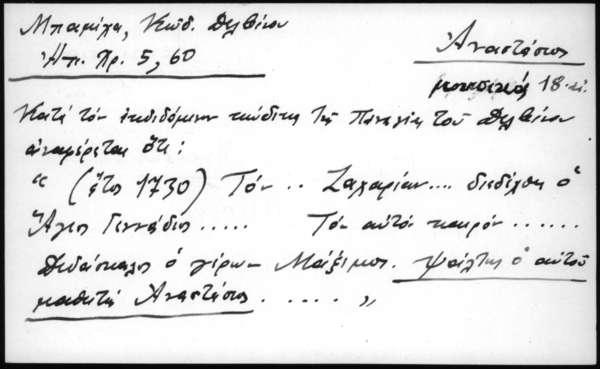 Μπαμίχα, Κώδ. Δελβίνου
Ἠπ. Χρ. 5, 60
Ἀναστάσιος
μουσικός 18 αἰ.
Κατά τόν ἐκδιδόμενον κώδικα τῆς Παναγίας τοῦ Δελβίνου
ἀναφέρεται ὅτι:
" (ἔτος 1730) Τόν .. Ζαχαρίαν.... διεδέχθη ὁ
Ἅγιος Γεννάδιος ..... Τόν αὐτόν καιρόν ......
Διδάσκαλος ὁ γέρων Μάξιμος. Ψάλτης ὁ αὐτοῦ
μαθητής Ἀναστάσιος ..... "